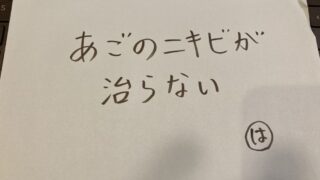 あごのニキビが
治らない
は